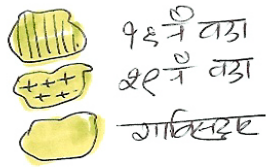 १६ नँ वडा
२९ नँ वडा
गाविसहरु